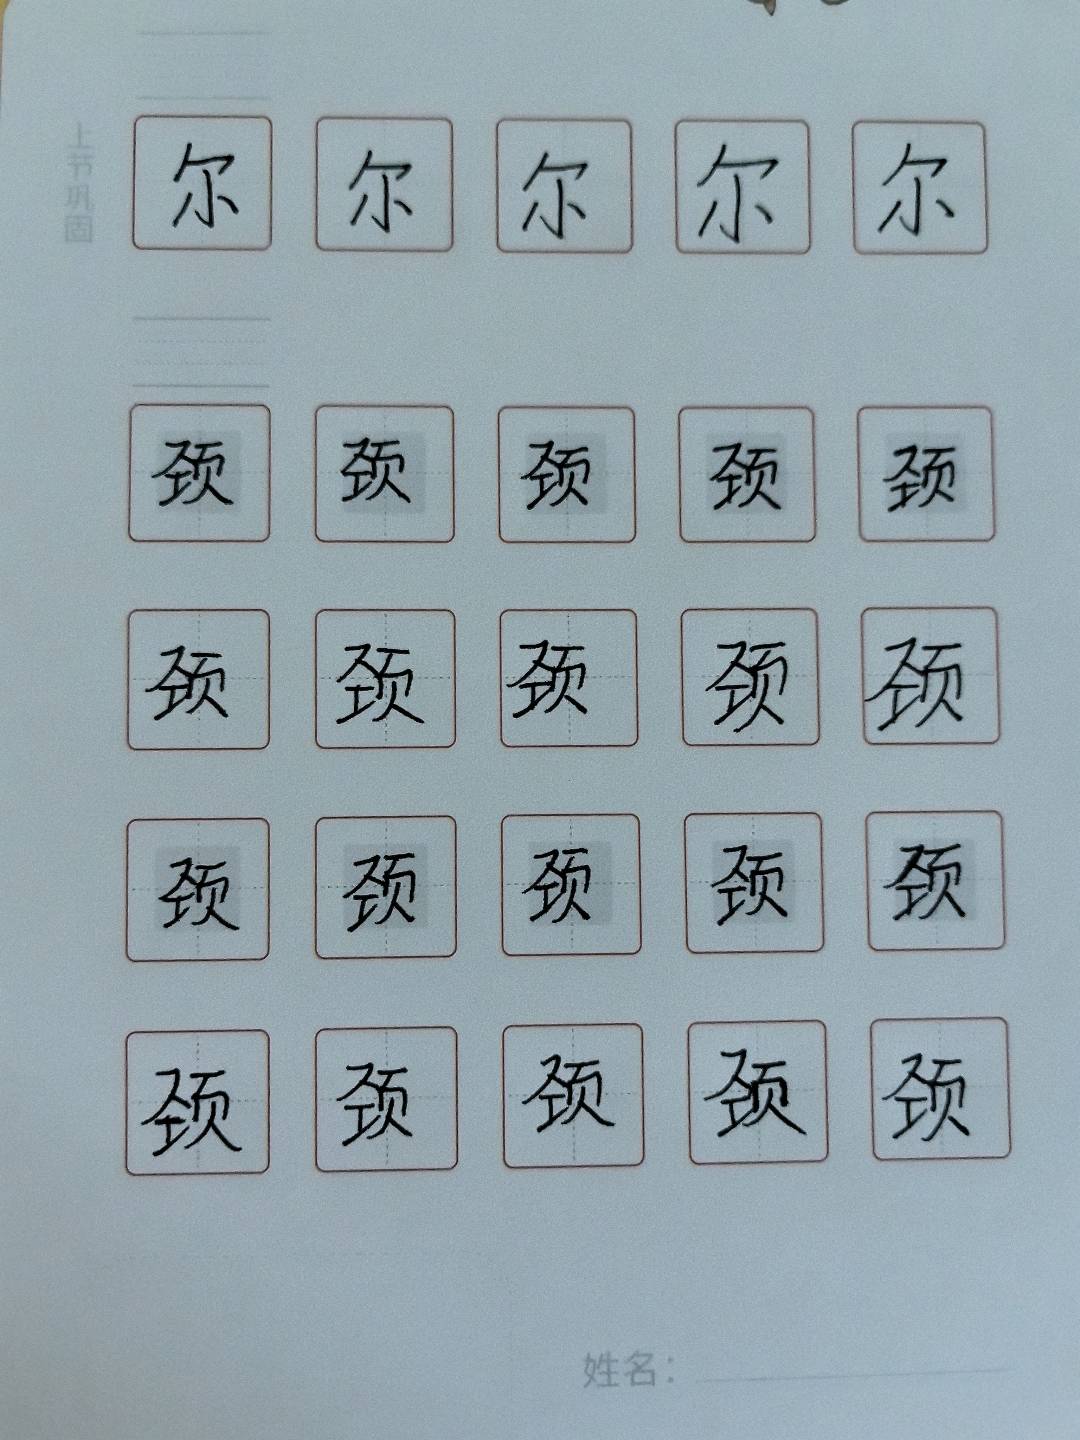 上节巩固
尔 尔 尔 尔 尔
颈 颈 颈 颈 颈
颈 颈 颈 颈 颈
颈 颈 颈 颈 颈
颈 颈 颈 颈 颈
姓名：